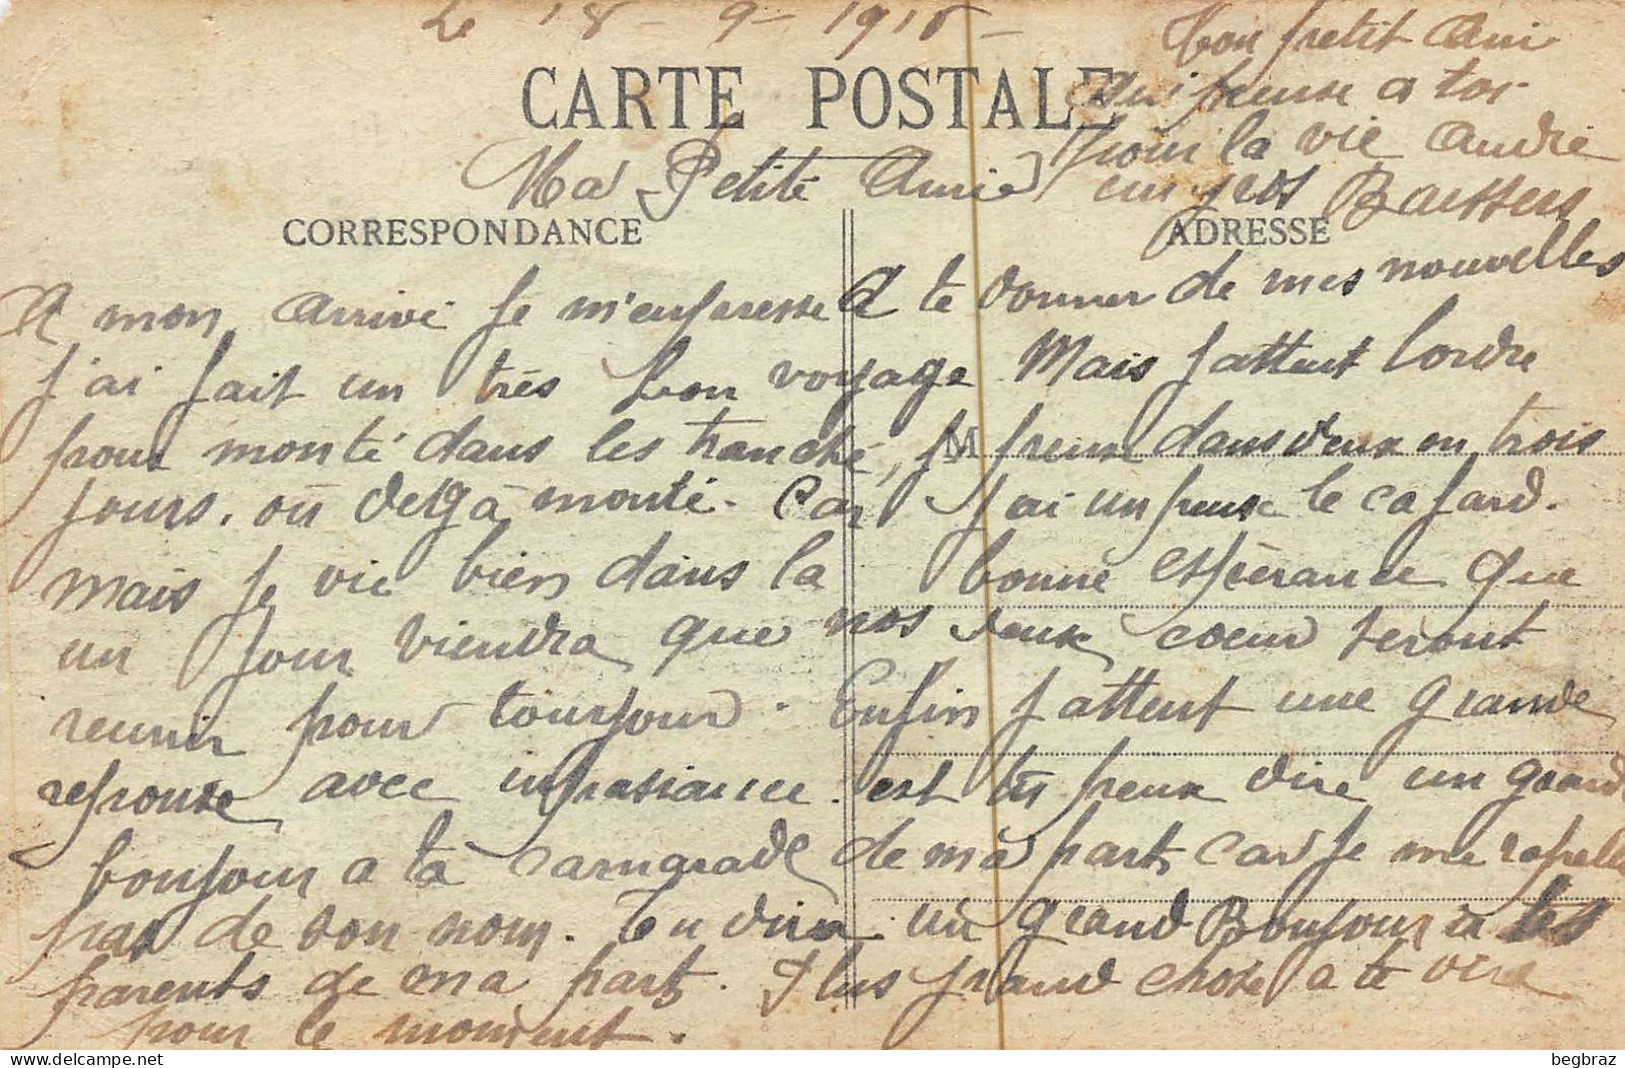 Le 18-9-1916-
CARTE POSTALE
Ma Petite Amie
CORRESPONDANCE
ADRESSE
A mon arrivé Je m'enpresse A te donner de mes nouvelles
J'ai fait un très bon voyage Mais J'attent lordre
pour monté dans les tranché, Je peux dans deux ou trois
M
Jours. où dejà monté. Car J'ai un peux le cafard.
mais Je vie bien dans la bonne espérance que
un Jour viendra que nos deux coeur seront
reunir pour toujour. Enfin J'attent une grande
reponse avec inpasiance. est tu peux dire un grand
bonjour a ta camarade de ma part, car Je me rapelle
pas de son nom. Tu dira un grand Bonjour à tes
parents de ma part. Plus grand chose a te dire
pour le moment.
Ton petit Ami
qui pense a toi
pour la vie André
un gros Baissers
begbraz